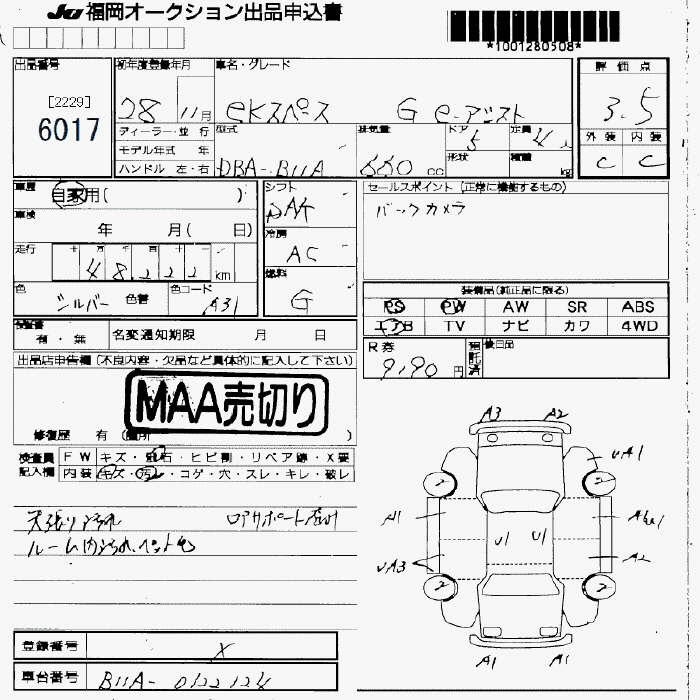 JU 福岡オークション出品申込書
*1001280508*
出品番号 初年度登録年月 車名・グレード 評価点
[2229]
6017
28 11月 eKスペース G e-アシスト 3.5
ディーラー・並行 型式 排気量 ドア 定員 外装 内装
モデル年式 年 5 4人 C C
ハンドル 左・右 DBA-B11A 660cc 形状 積載 kg
車歴 自家用( ) シフト セールスポイント (正常に機能するもの)
車検 年 月( 日) DAT バックカメラ
走行 十 万 千 百 十 一 冷房
48222km AC
色 シルバー 色替 色コード A31 燃料 G
装備品(純正品に限る)
PS PW AW SR ABS
エアB TV ナビ カワ 4WD
検査書 有・無 名変通知期限 月 日
R券 9190円 預託済 後日品
出品店申告欄(不良内容・欠品など具体的に記入して下さい)
MAA売切り
修復歴 有 (箇所 )
検査員 FW キズ・飛石・ヒビ割・リペア跡・X要
記入欄 内装 キズ・汚レ・コゲ・穴・スレ・キレ・破レ
天張り汚れ
ルーム内汚れ、ペット毛
A3 A2
UA1
A1
U1 U1
UA3 A2
A1 A1
登録番号 X
車台番号 B11A-0122124